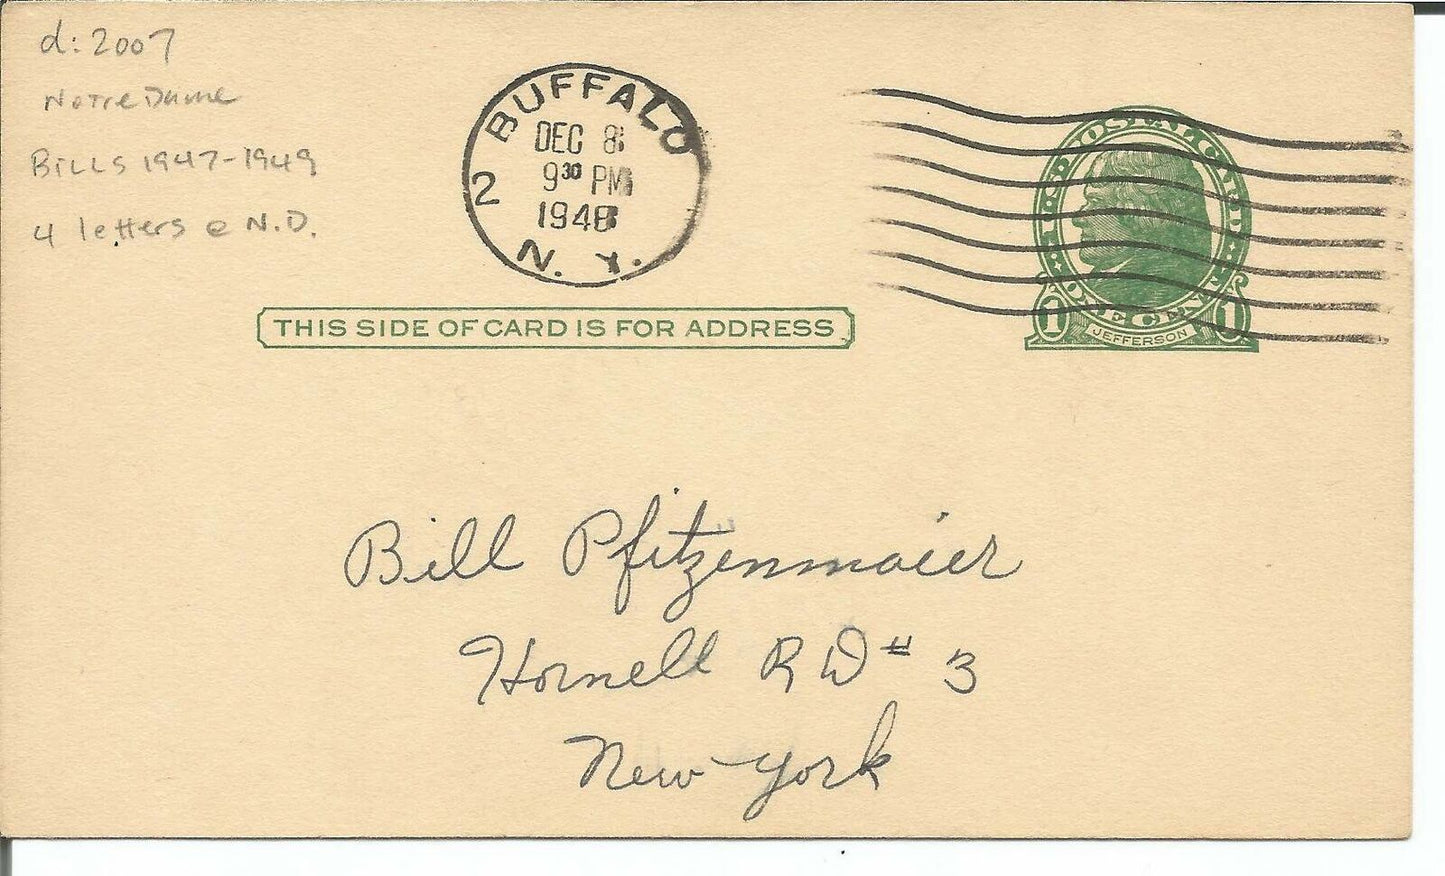 d: 2007
Notre Dame
Bills 1947-1949
4 letters @ N.D.
2 BUFFALO N. Y.
DEC 8
9 30 PM
1948
U·S·POSTAL CARD·
·ONE CENT·
1 JEFFERSON 1
THIS SIDE OF CARD IS FOR ADDRESS
Bill Pfitzenmaier
Hornell RD # 3
New York